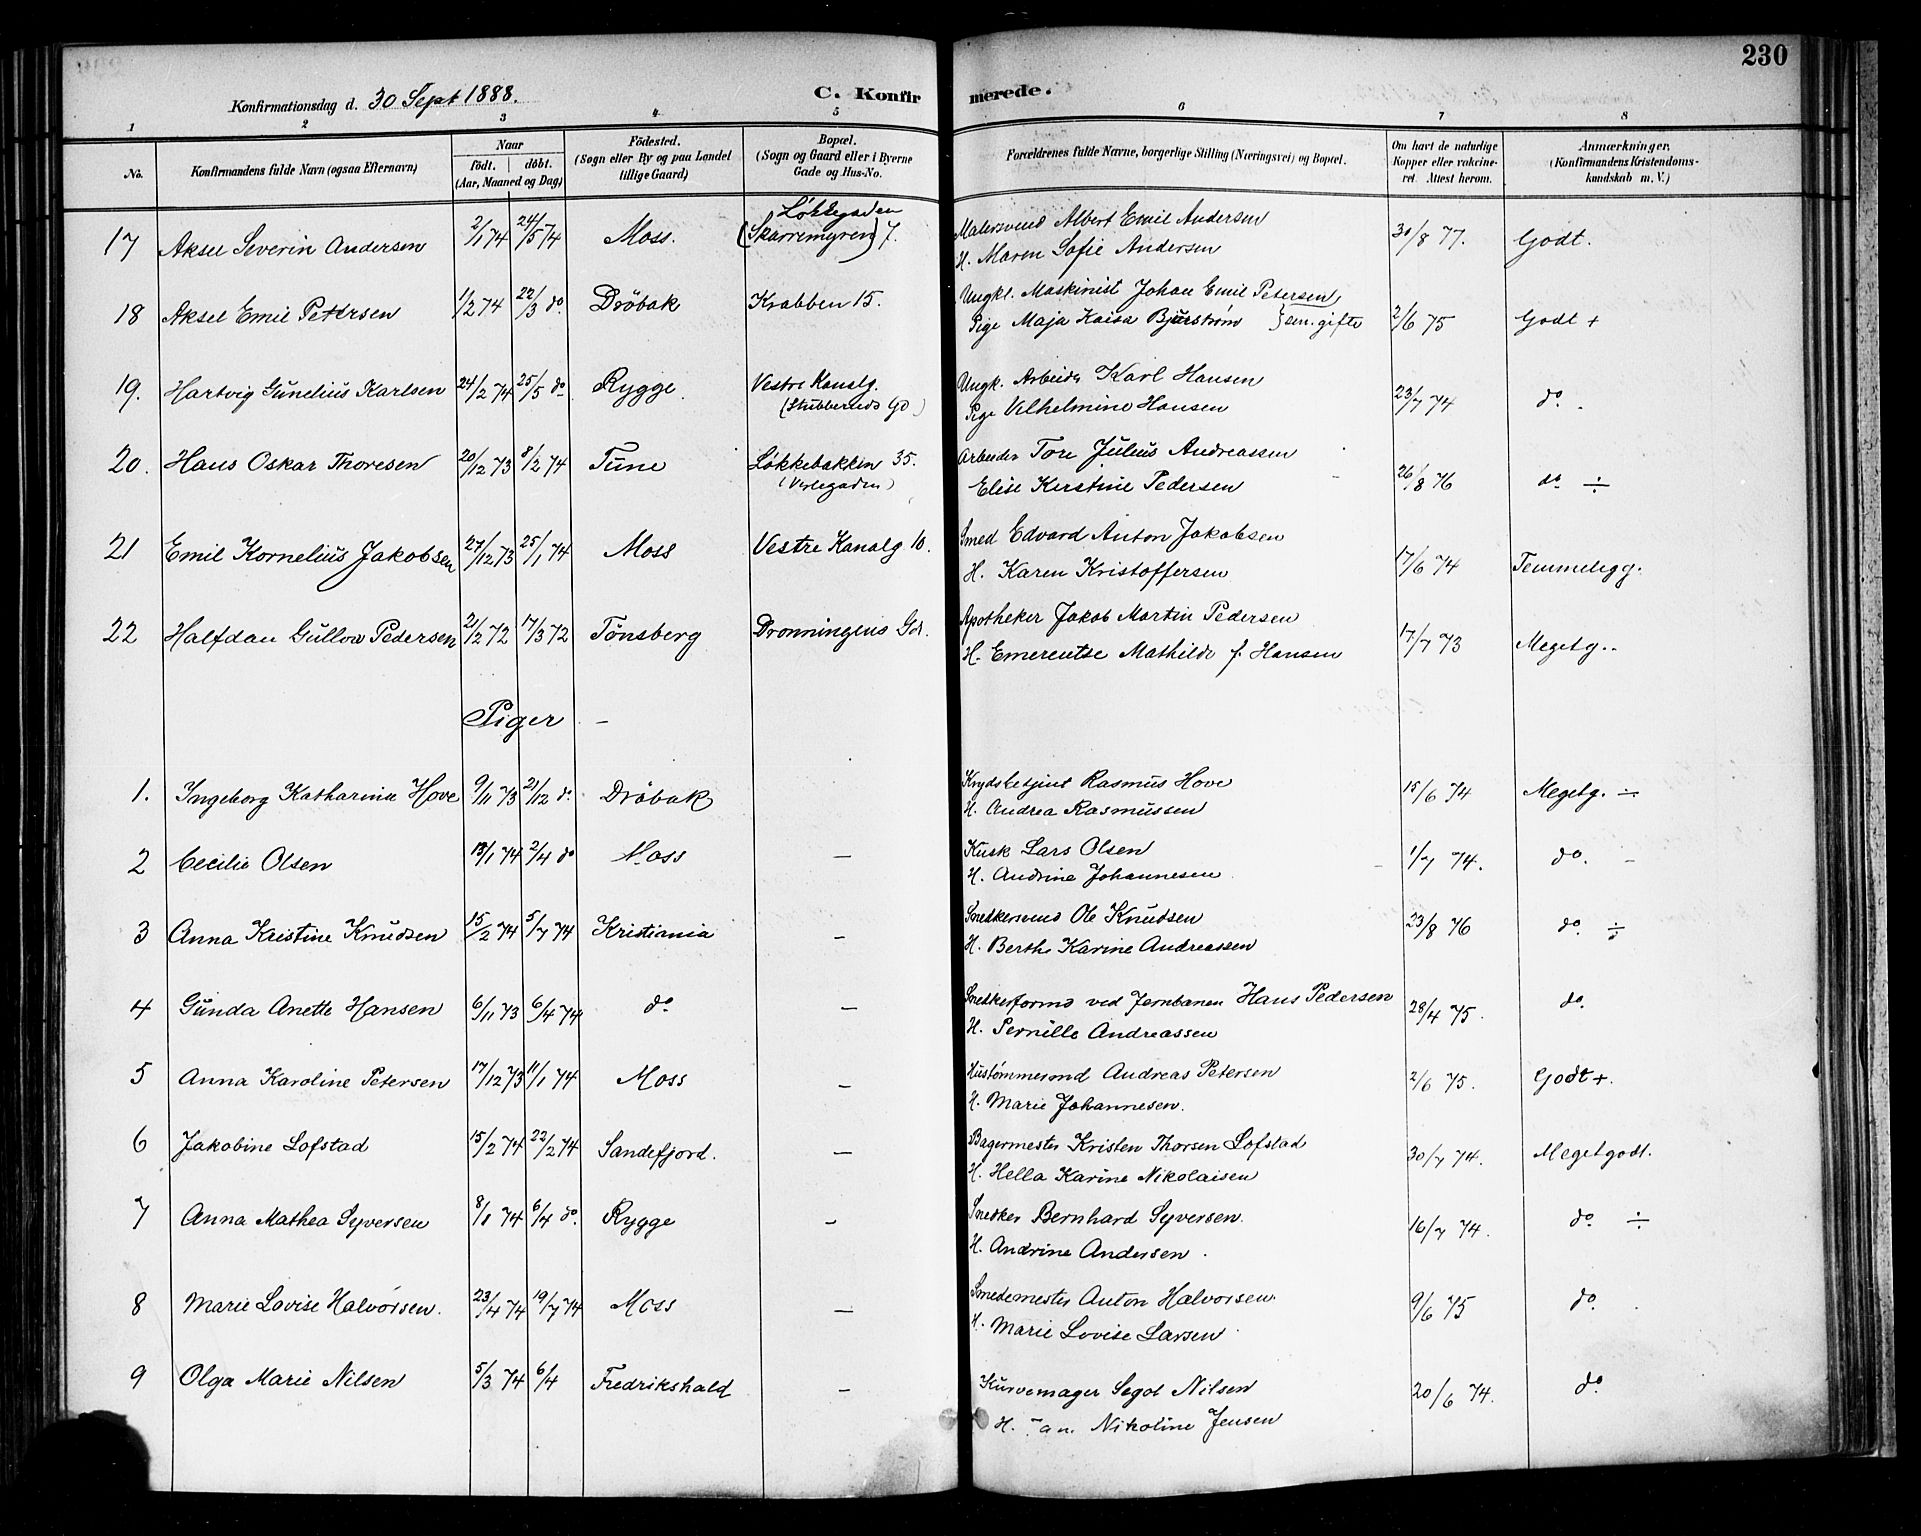 230
Konfirmationsdag d. 30 Sept 1888.
C. Konfirmerede.
1 2 3 4 5 6 7 8
No.
Konfirmandens fulde Navn (ogsaa Efternavn)
Naar
födt. döbt.
(Aar, Maaned og Dag)
Födested.
(Sogn eller By og paa Landet
tillige Gaard)
Bopæl.
(Sogn og Gaard eller i Byerne
Gade og Hus-No.
Forældrenes fulde Navne, borgerlige Stilling (Næringsvei) og Bopæl.
Om havt de naturlige
Kopper eller vakcine-
ret. Attest herom.
Anmærkninger,
(Konfirmandens Kristendoms-
kundskab m. V.)
Løkkegaden
17 Aksel Severin Andersen 2/1 74 24/5 74 Moss. (Skarremyren) 7. Malersvend Albert Emil Andersen 30/8 77. Godt.
H. Maren Sofie Andersen
18 Aksel Emil Petersen 1/2 74 22/3 do. Dröbak Krabben 15. Ungkl. Maskinist Johan Emil Petersen,
Pige Maja Kaisa Bjurström } sen. gifte 2/6 75 Godt +
19. Hartvig Gunelius Karlsen 24/2 74 25/5 do Rygge. Vestre Kanalg. Ungk. Arbeider Karl Hansen 23/7 74 do.
(Stubberuds Gd) Pige Vilhelmine Hansen
20. Hans Oskar Thoresen 20/12 73 8/2 74 Tune Løkkebakken 35. Arbeider Tore Julius Andreassen
(Verlegaden) Elise Kerstine Pedersen 26/8 76 do ÷
21 Emil Kornelius Jakobsen 27/12 73 25/1 74 Moss Vestre Kanalg 10. Smed Edvard Anton Jakobsen
H. Karen Kristoffersen 17/6 74 Temmeligg.
22 Halfdan Gullow Pedersen 21/2 72 17/3 72 Tønsberg Dronningens Gd. Apotheker Jakob Martin Pedersen
H. Emerentse Mathilde f. Hansen 17/7 73 Megetg..
Piger –
1. Ingeborg Katharina Hove 9/11 73 21/12 do. Dröbak Krydsbetjent Rasmus Hove 15/6 74 Megetg. ÷
H. Andrea Rasmussen
2 Cecilie Olsen 13/1 74 2/4 do Moss – Kusk Lars Olsen 1/7 74. do. –
H. Andrine Johannesen
3 Anna Kristine Knudsen 15/2 74 5/7 74 Kristiania – Snedkersvend Ole Knudsen 23/8 76 do. ÷
H. Berthe Karine Andreassen
4 Gunda Anette Hansen 6/11 73 6/4 74 do – Snedkerformd ved Jernbanen Hans Pedersen 28/4 75. do.
H. Pernille Andreassen
5 Anna Karoline Petersen 17/12 73 11/1 74 Moss – Hustømmermd Andreas Petersen 2/6 75. Godt +.
H. Marie Johannesen.
6 Jakobine Lofstad 15/2 74 22/2 74 Sandefjord. – Bagermester Kristen Thorsen Lofstad 30/7 74. Megetgodt.
H. Hella Karine Nikolaisen
7 Anna Mathea Syversen 8/1 74 6/4 do. Rygge – Snedker Bernhard Syversen. 16/7 74. do ÷
H. Andrine Andersen.
8 Marie Lovise Halvorsen. 23/4 74 19/7 74 Moss – Smedemester Anton Halvorsen. 9/6 75 do.
H. Marie Lovise Larsen
9 Olga Marie Nilsen 5/3 74 6/4 Fredrikshald – Kurvemager Segol Nilsen 20/6 74. do
H. Nikoline Jensen